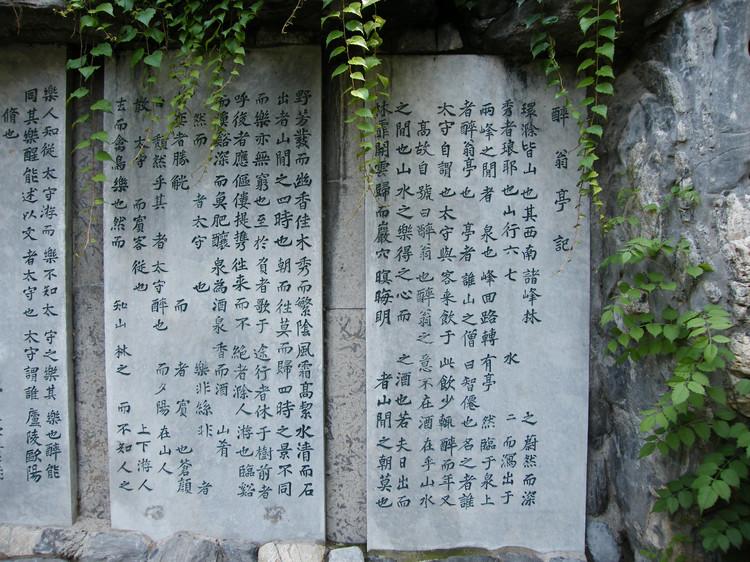 醉翁亭記
環滁皆山也其西南諸峰林 之蔚然而深
秀者琅耶也山行六七 水 二而瀉出于
兩峰之間者 泉也峰回路轉有亭 然臨于泉上
者醉翁亭也 亭者誰山之僧曰智僊也名之者誰
太守自謂也太守與客來飲于此飲少輒醉而年又
高故自號曰醉翁也醉翁之意不在酒在乎山水
之間也山水之樂得之心而 之酒也若夫日出而
林霏開雲歸而巖穴暝晦明 者山間之朝莫也
野芳發而幽香佳木秀而繁陰風霜高絜水清而石
出者山間之四時也朝而往莫而歸四時之景不同
而樂亦無窮也至於負者歌于途行者休于樹前者
呼後者應傴僂提攜往來而不絕者滁人游也臨谿
而漁谿深而魚肥釀泉為酒泉香而酒 山肴
然而 者太守 也 樂非絲非 者
弈者勝觥 而 者賓 也蒼顏
頹然乎其 者太守醉也 而夕陽在山人
散 太守 而賓客從也 上下游人
去而禽鳥樂也然而 知山林之 而不知人之
樂人知從太守游而樂不知太守之樂其樂也醉能
同其樂醒能述以文者太守也太守謂誰廬陵歐陽
脩也